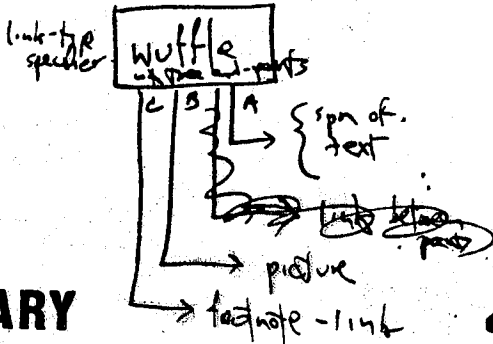 link-type
specifier
wuffle
with three end-points
C B A
span of
text
links between
parts
picture
footnote-link
ARY